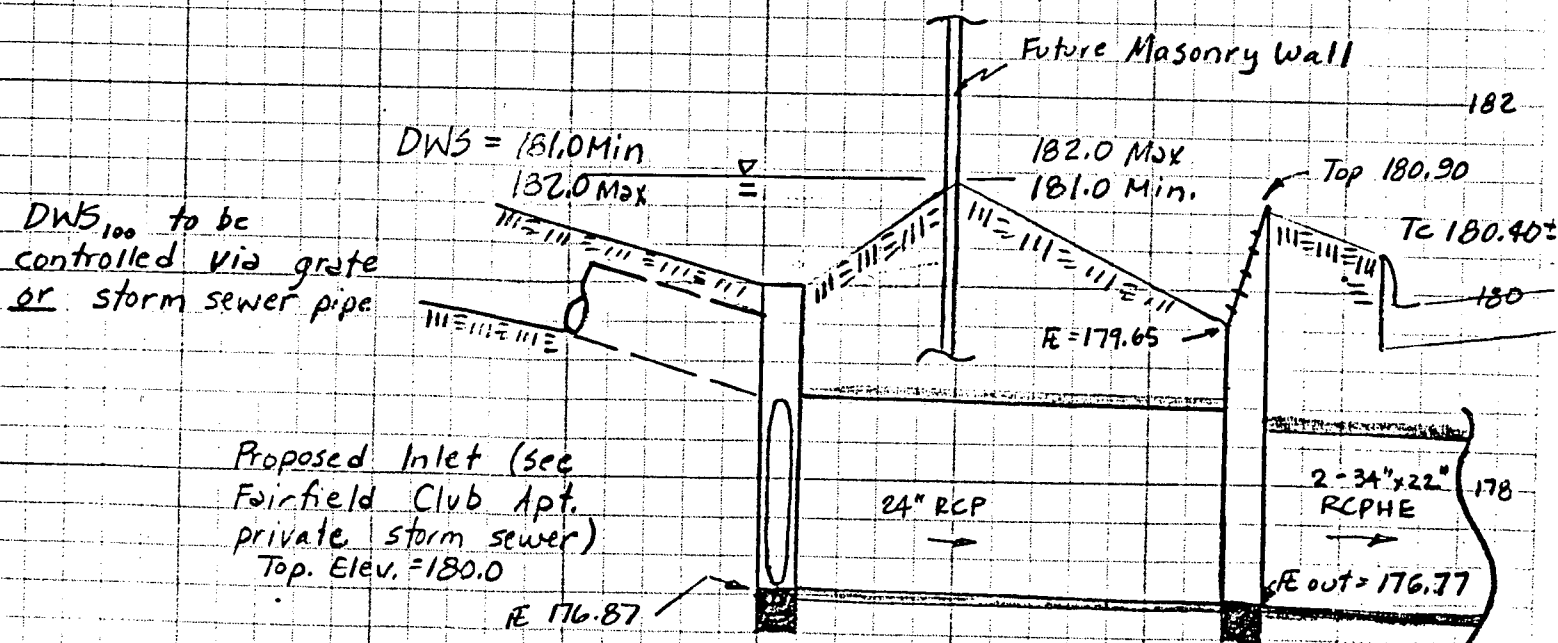 Future Masonry Wall
182
DWS = 181.0 Min
182.0 Max
182.0 Max
181.0 Min.
Top 180.90
DWS100 to be
controlled via grate
or storm sewer pipe
Tc 180.40±
180
FE = 179.65
Proposed Inlet (see
Fairfield Club Apt.
private storm sewer)
Top. Elev. = 180.0
24" RCP
2-34"x22"
RCPHE
178
FE 176.87
FE out = 176.77